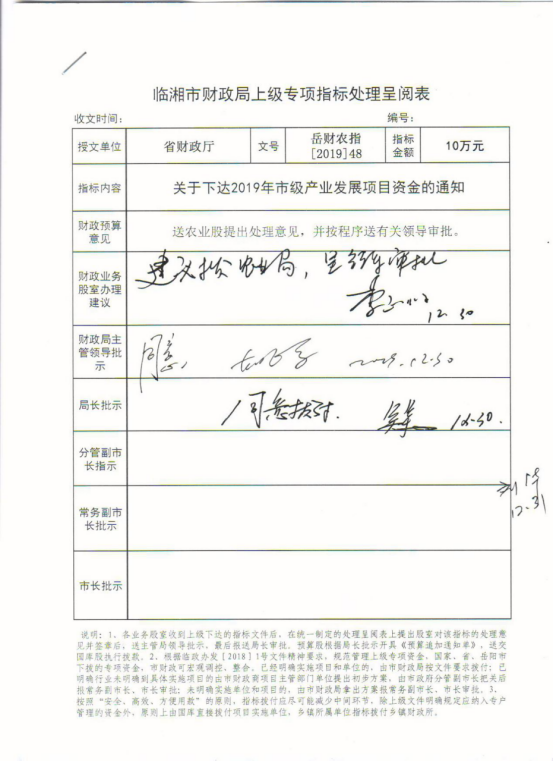 临湘市财政局上级专项指标处理呈阅表
收文时间： 编号：
授文单位 省财政厅 文号 岳财农指[2019]48 指标金额 10万元
指标内容 关于下达2019年市级产业发展项目资金的通知
财政预算意见 送农业股提出处理意见，并按程序送有关领导审批。
财政业务股室办理建议 建议拨农业局，呈领导审批
12.30
财政局主管领导批示 同意 2019.12.30
局长批示 同意拨付. 12.30.
分管副市长指示
常务副市长批示
12.31
市长批示
说明：1、各业务股室收到上级下达的指标文件后，在统一制定的处理呈阅表上提出股室对该指标的处理意
见并签章后，送主管局领导批示，最后报送局长审批。预算股根据局长批示开具《预算追加通知单》，送交
国库股执行拨款。2、根据临政办发［2018］1号文件精神要求，规范管理上级专项资金，国家、省、岳阳市
下拨的专项资金，市财政可宏观调控、整合。已经明确实施项目和单位的，由市财政局按文件要求拨付；已
明确行业未明确到具体实施项目的由市财政商项目主管部门单位提出初步方案，由市政府分管副市长把关后
报常务副市长、市长审批；未明确实施单位和项目的，由市财政局拿出方案报常务副市长、市长审批。3、
按照“安全、高效、方便用款”的原则，指标拨付应尽可能减少中间环节，除上级文件明确规定应纳入专户
管理的资金外，原则上由国库直接拨付项目实施单位，乡镇所属单位指标拨付乡镇财政所。